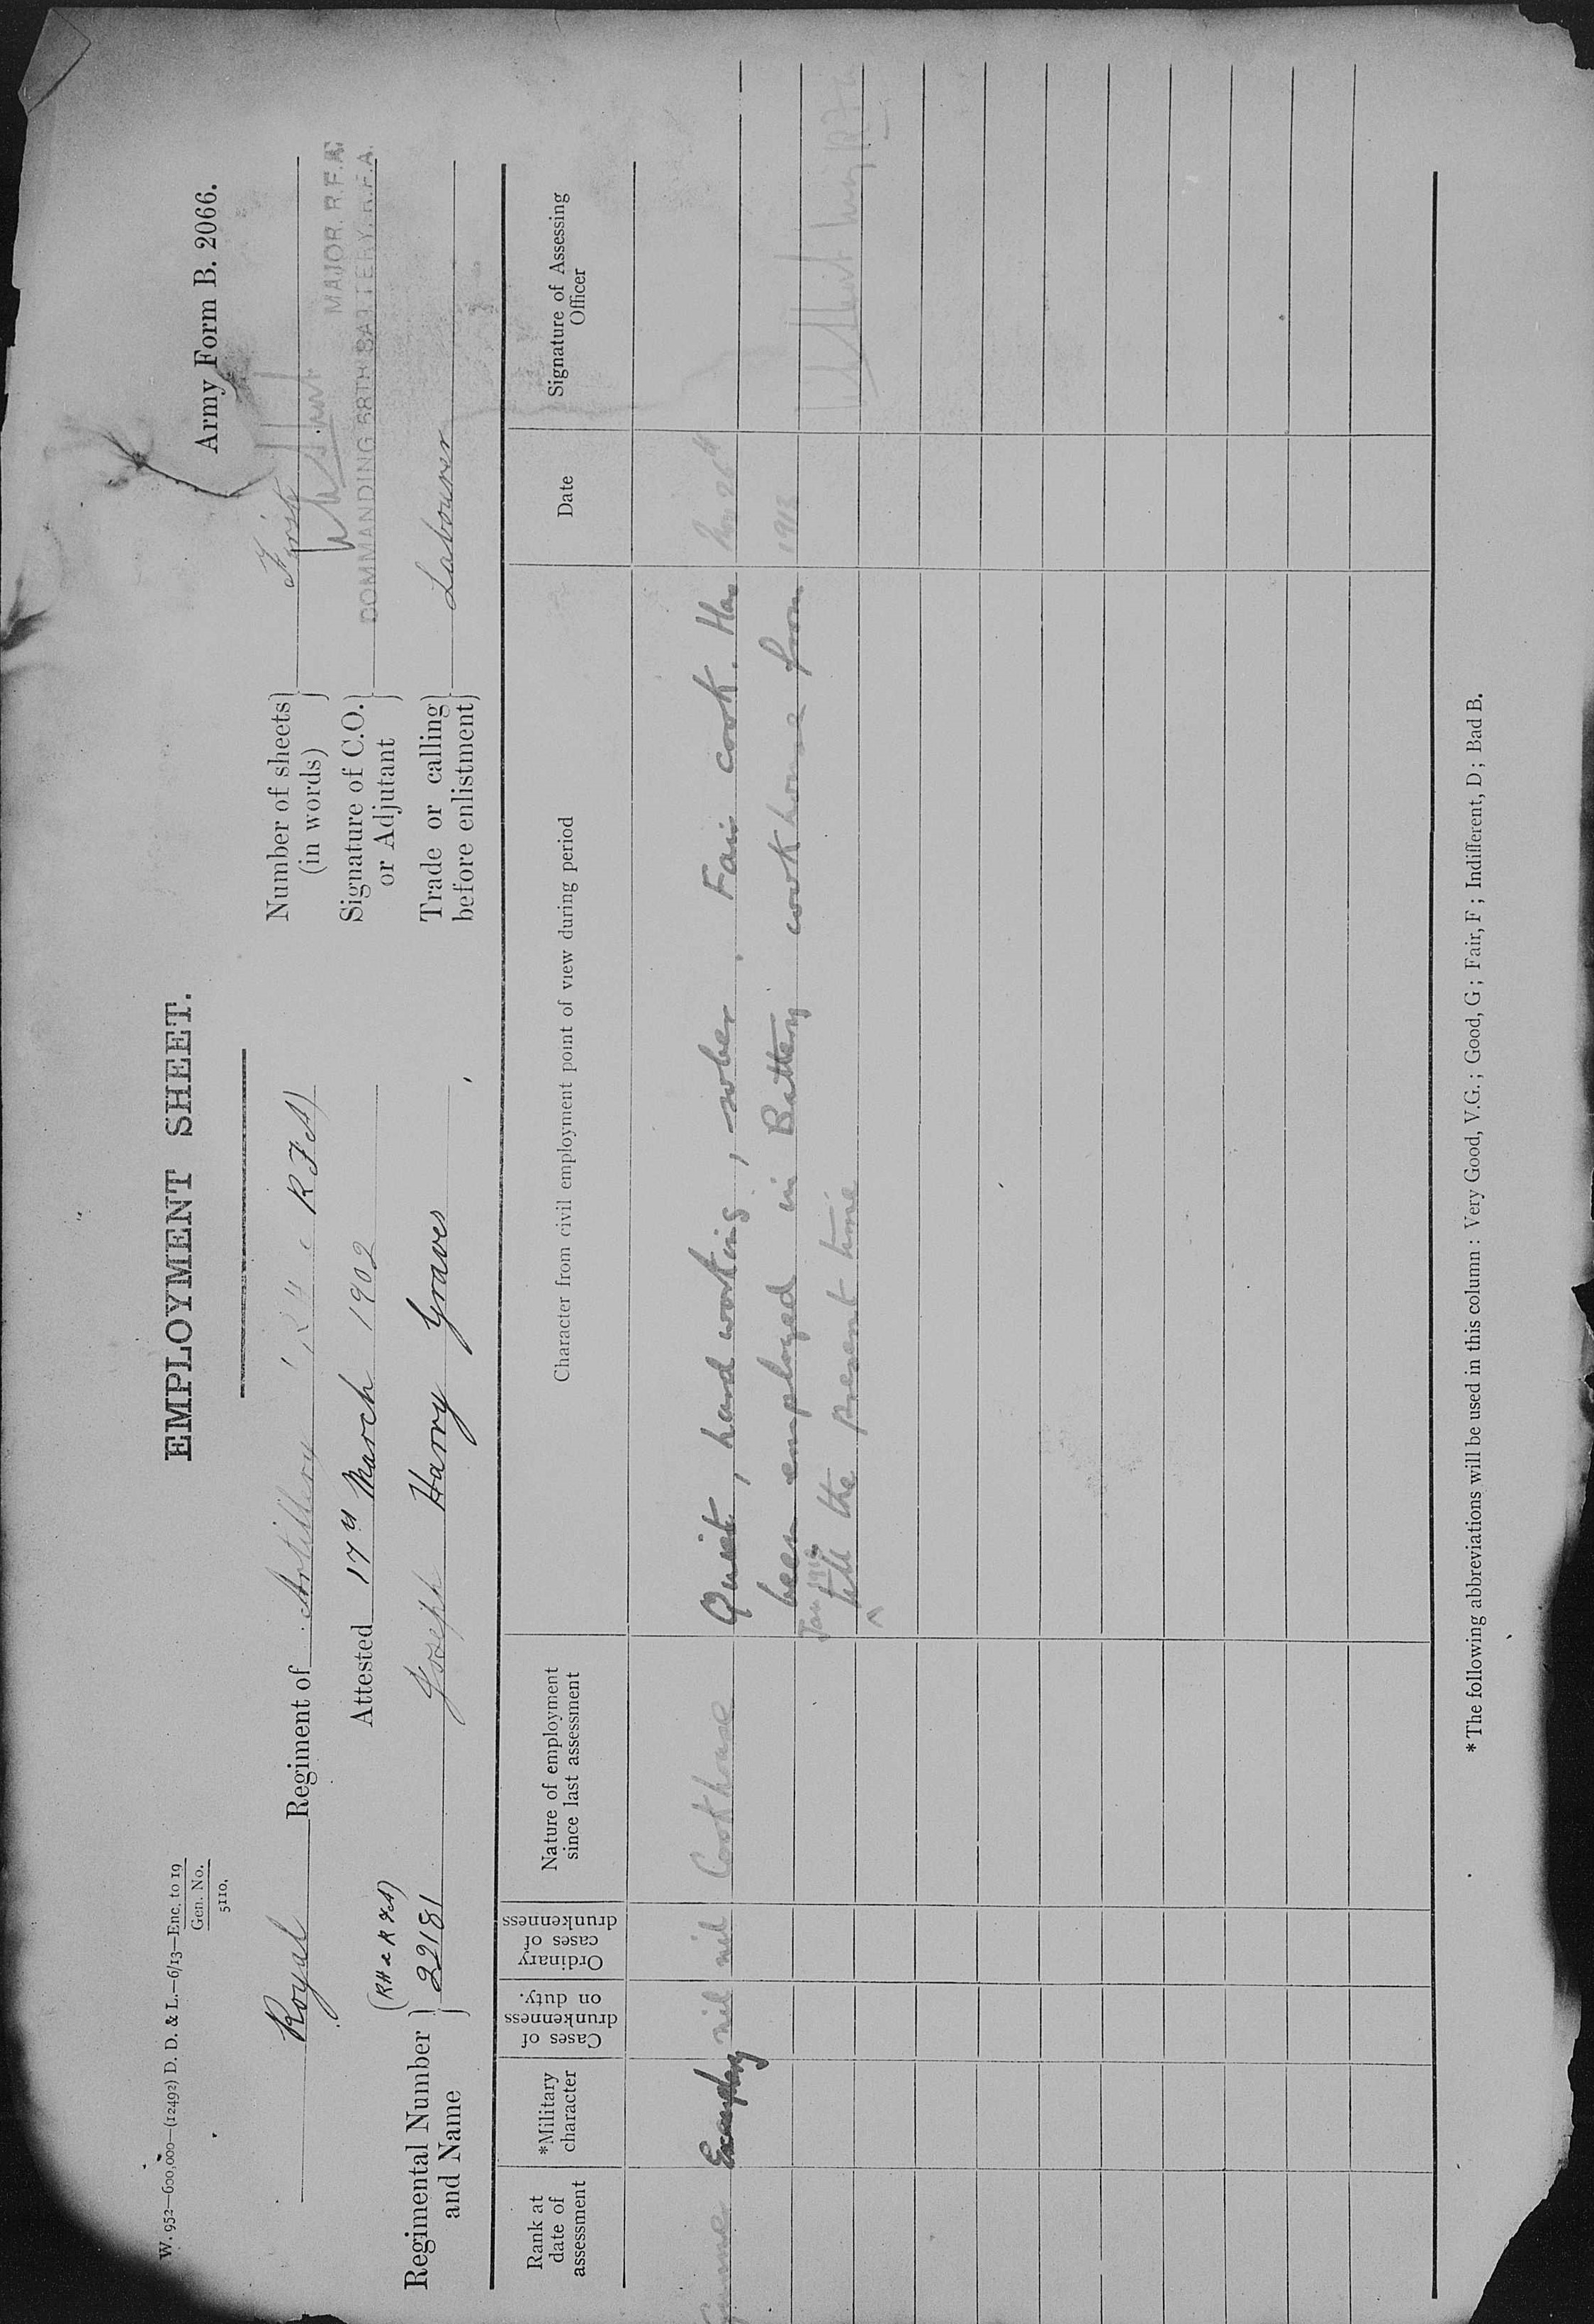 W. 952—600,000—(12492) D. D. & L.—6/13—Enc. to 19
Gen. No.
5110.
EMPLOYMENT SHEET.
Army Form B. 2066.
Royal Regiment of Artillery RFA)
Number of sheets (in words) } First
Attested 17th March 1902
Signature of C.O. or Adjutant }
MAJOR. R.F.A.
COMMANDING BATTERY. R.F.A.
(RH & RFA)
Regimental Number and Name } 22181 Joseph Harry Graves
Trade or calling before enlistment } Labourer
Rank at date of assessment
*Military character
Cases of drunkenness on duty.
Ordinary cases of drunkenness
Nature of employment since last assessment
Character from civil employment point of view during period
Date
Signature of Assessing Officer
Exemplary nil nil Cookhouse Quiet, hard working, sober. Fair cook. Has
been employed in Battery cookhouse from 1913
Jan
till the present time
*The following abbreviations will be used in this column : Very Good, V.G. ; Good, G ; Fair, F ; Indifferent, D ; Bad B.